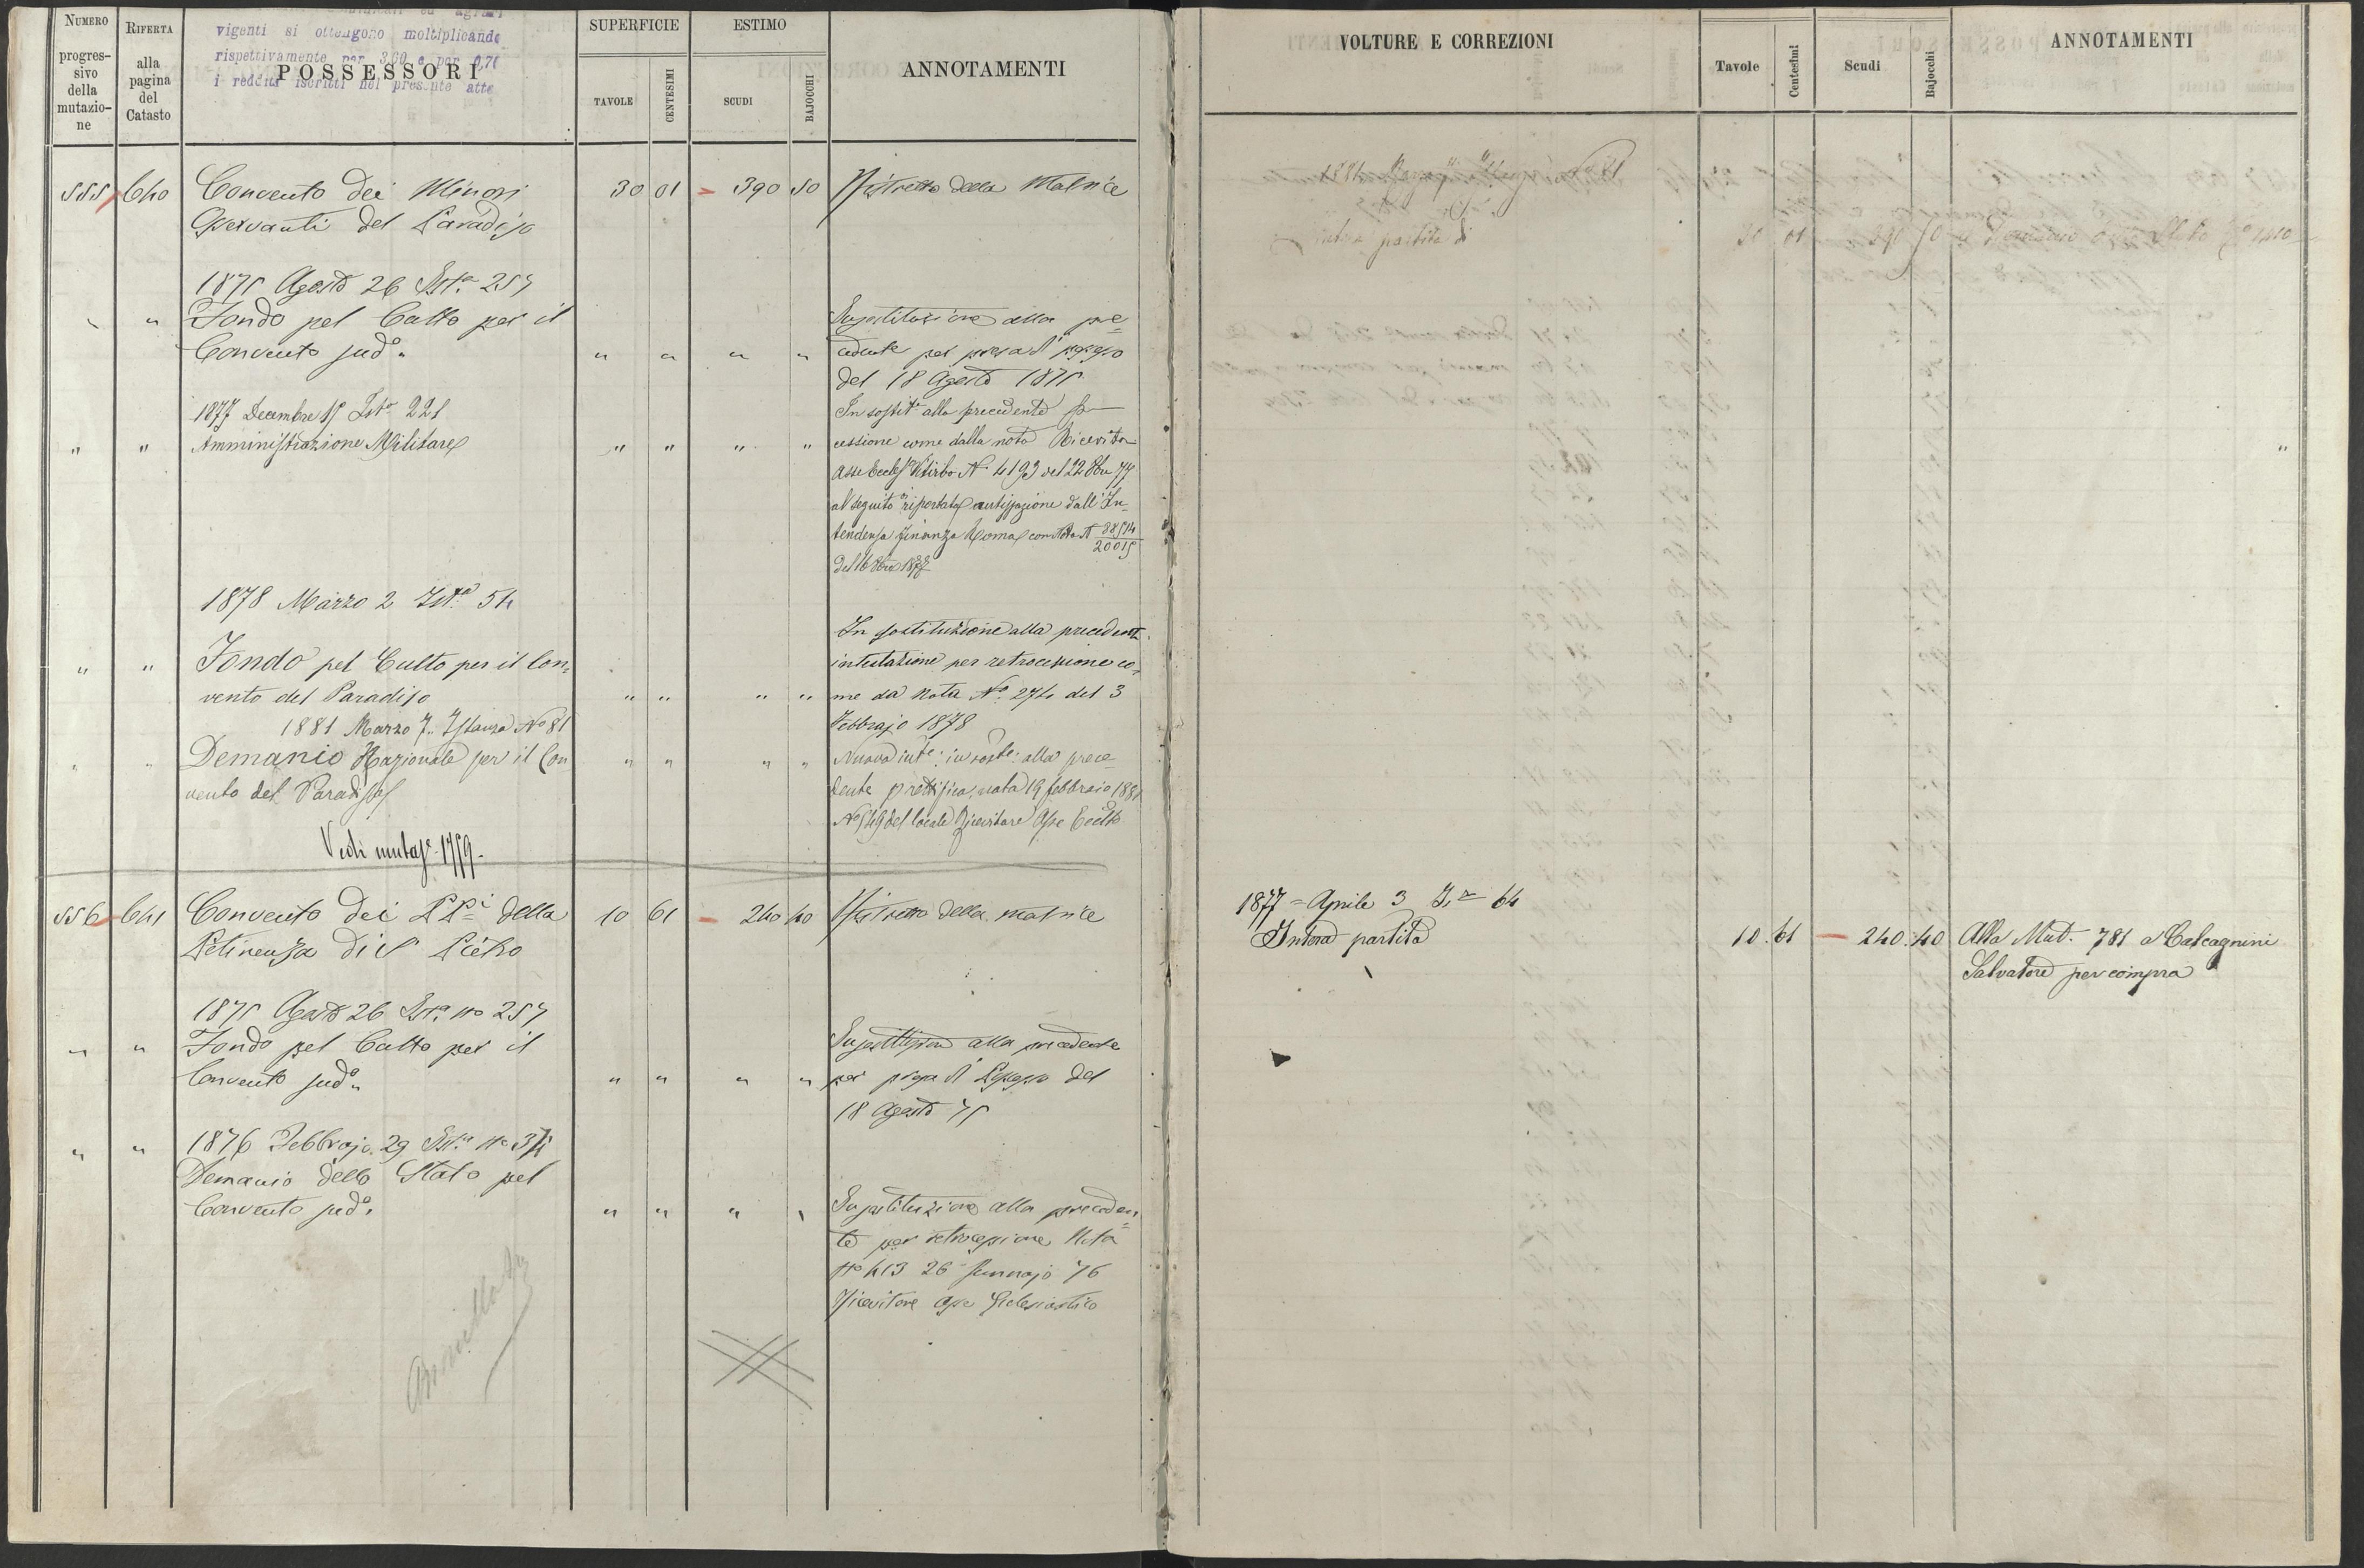 NUMERO
progres-
sivo
della
mutazio-
ne
RIFERTA
alla
pagina
del
Catasto
vigenti si ottengono moltiplicando
rispettivamente per 3,60 e per 0,70
i redditi iscritti nel presente atto
POSSESSORI
SUPERFICIE
TAVOLE
CENTESIMI
ESTIMO
SCUDI
BAJOCCHI
ANNOTAMENTI
555 640 Convento dei Minori 30 01 390 50 Ristretto della Matrice
Osservanti del Paradiso
1875 Agosto 26 Ist.a 257
" " Fondo pel Culto per il
Convento sud.o " " " "
Sustituzione alla pre=
cedente per presa di possesso
del 18 Agosto 1875
1877 Decembre 15 Ist.a 221
" " Amministrazione Militare " " " "
In sostit.e alla precedente per
cessione come dalla nota Ricevitor
Asse Eccles.o Viterbo N. 4193 del 22
al seguito riportata autorizzazione dall'In-
tendenza Finanza Roma con Nota N 38514
20015
del 16 1877
1878 Marzo 2 Ist.a 54
" " Fondo pel Culto per il Con=
vento del Paradiso " " " "
In sostituzione alla precedente
intestazione per retrocessione co=
me da nota N.o 274 del 3
Febbrajo 1878
1881 Marzo 7. Istanza N.o 81
" " Demanio Nazionale per il Con " " " "
vento del Paradiso
Nuova int.e: in sost.e: alla prece-
dente p rettifica, nota 19 febbraio 1881
N.o 549 del locale Ricevitore Asse Eccl.o
Vedi mutaz.e 1759.
556 641 Convento dei PP.i della 10 61 240 40 Ristretto della matrice
Petinenza di S. Pietro
1875 Agosto 26 Ist.a N.o 257
" " Fondo pel Culto per il
Convento sud.o " " " "
Sustituzione alla precedente
per presa di Possesso del
18 Agosto 75
" " 1876 Febbrajo 29 Ist.a N.o
Demanio dello Stato pel
Convento sud.o " " " "
Sustituzione alla preceden=
te per retrocessione Nota
N.o 413 26 Gennajo 76
Ricevitore Asse Ecclesiastico
VOLTURE E CORREZIONI
Tavole
Centesimi
Scudi
Bajocchi
ANNOTAMENTI
N.o 81
Intera partita di 30 01 390 50
1877 = Aprile 3 I.a 64
Intera partita 10. 61 240. 40 Alla Mut. 781 a Calcagnini
Salvatore per compra